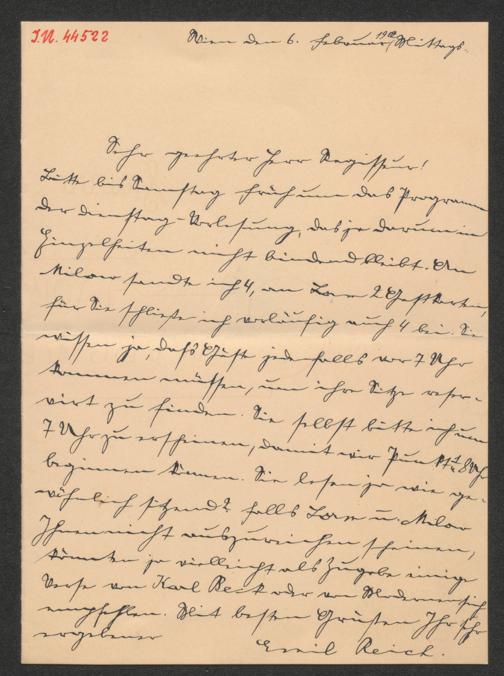 I.N. 44522
Wien den 6. Februar 1902 Mittags.
Sehr geehrter Herr Regisseur!
Bitte bis Samstag früh um das Programm
der Dienstag-Vorlesung, das ja darum in
Einzelheiten nicht bindend bleibt. An
Milow sandte ich 4, an 2 Gastkarten,
für Sie schließe ich vorläufig auch 4 bei. Sie
wissen ja, daß Gäste jedenfalls vor 7 Uhr
kommen müssen, um ihre Sitze reser-
virt zu finden. Sie selbst bitte ich um
7 Uhr zu erscheinen, damit wir Punkt 8 Uhr
beginnen können. Sie lesen ja wie ge-
wöhnlich sitzend? falls u. Milow
Ihnen nicht auszureichen scheinen,
könnten ja vielleicht als Zugabe einige
Verse von Karl Beck oder von sich
empfehlen. Mit besten Grüßen Ihr sehr
ergebener
Emil Reich.